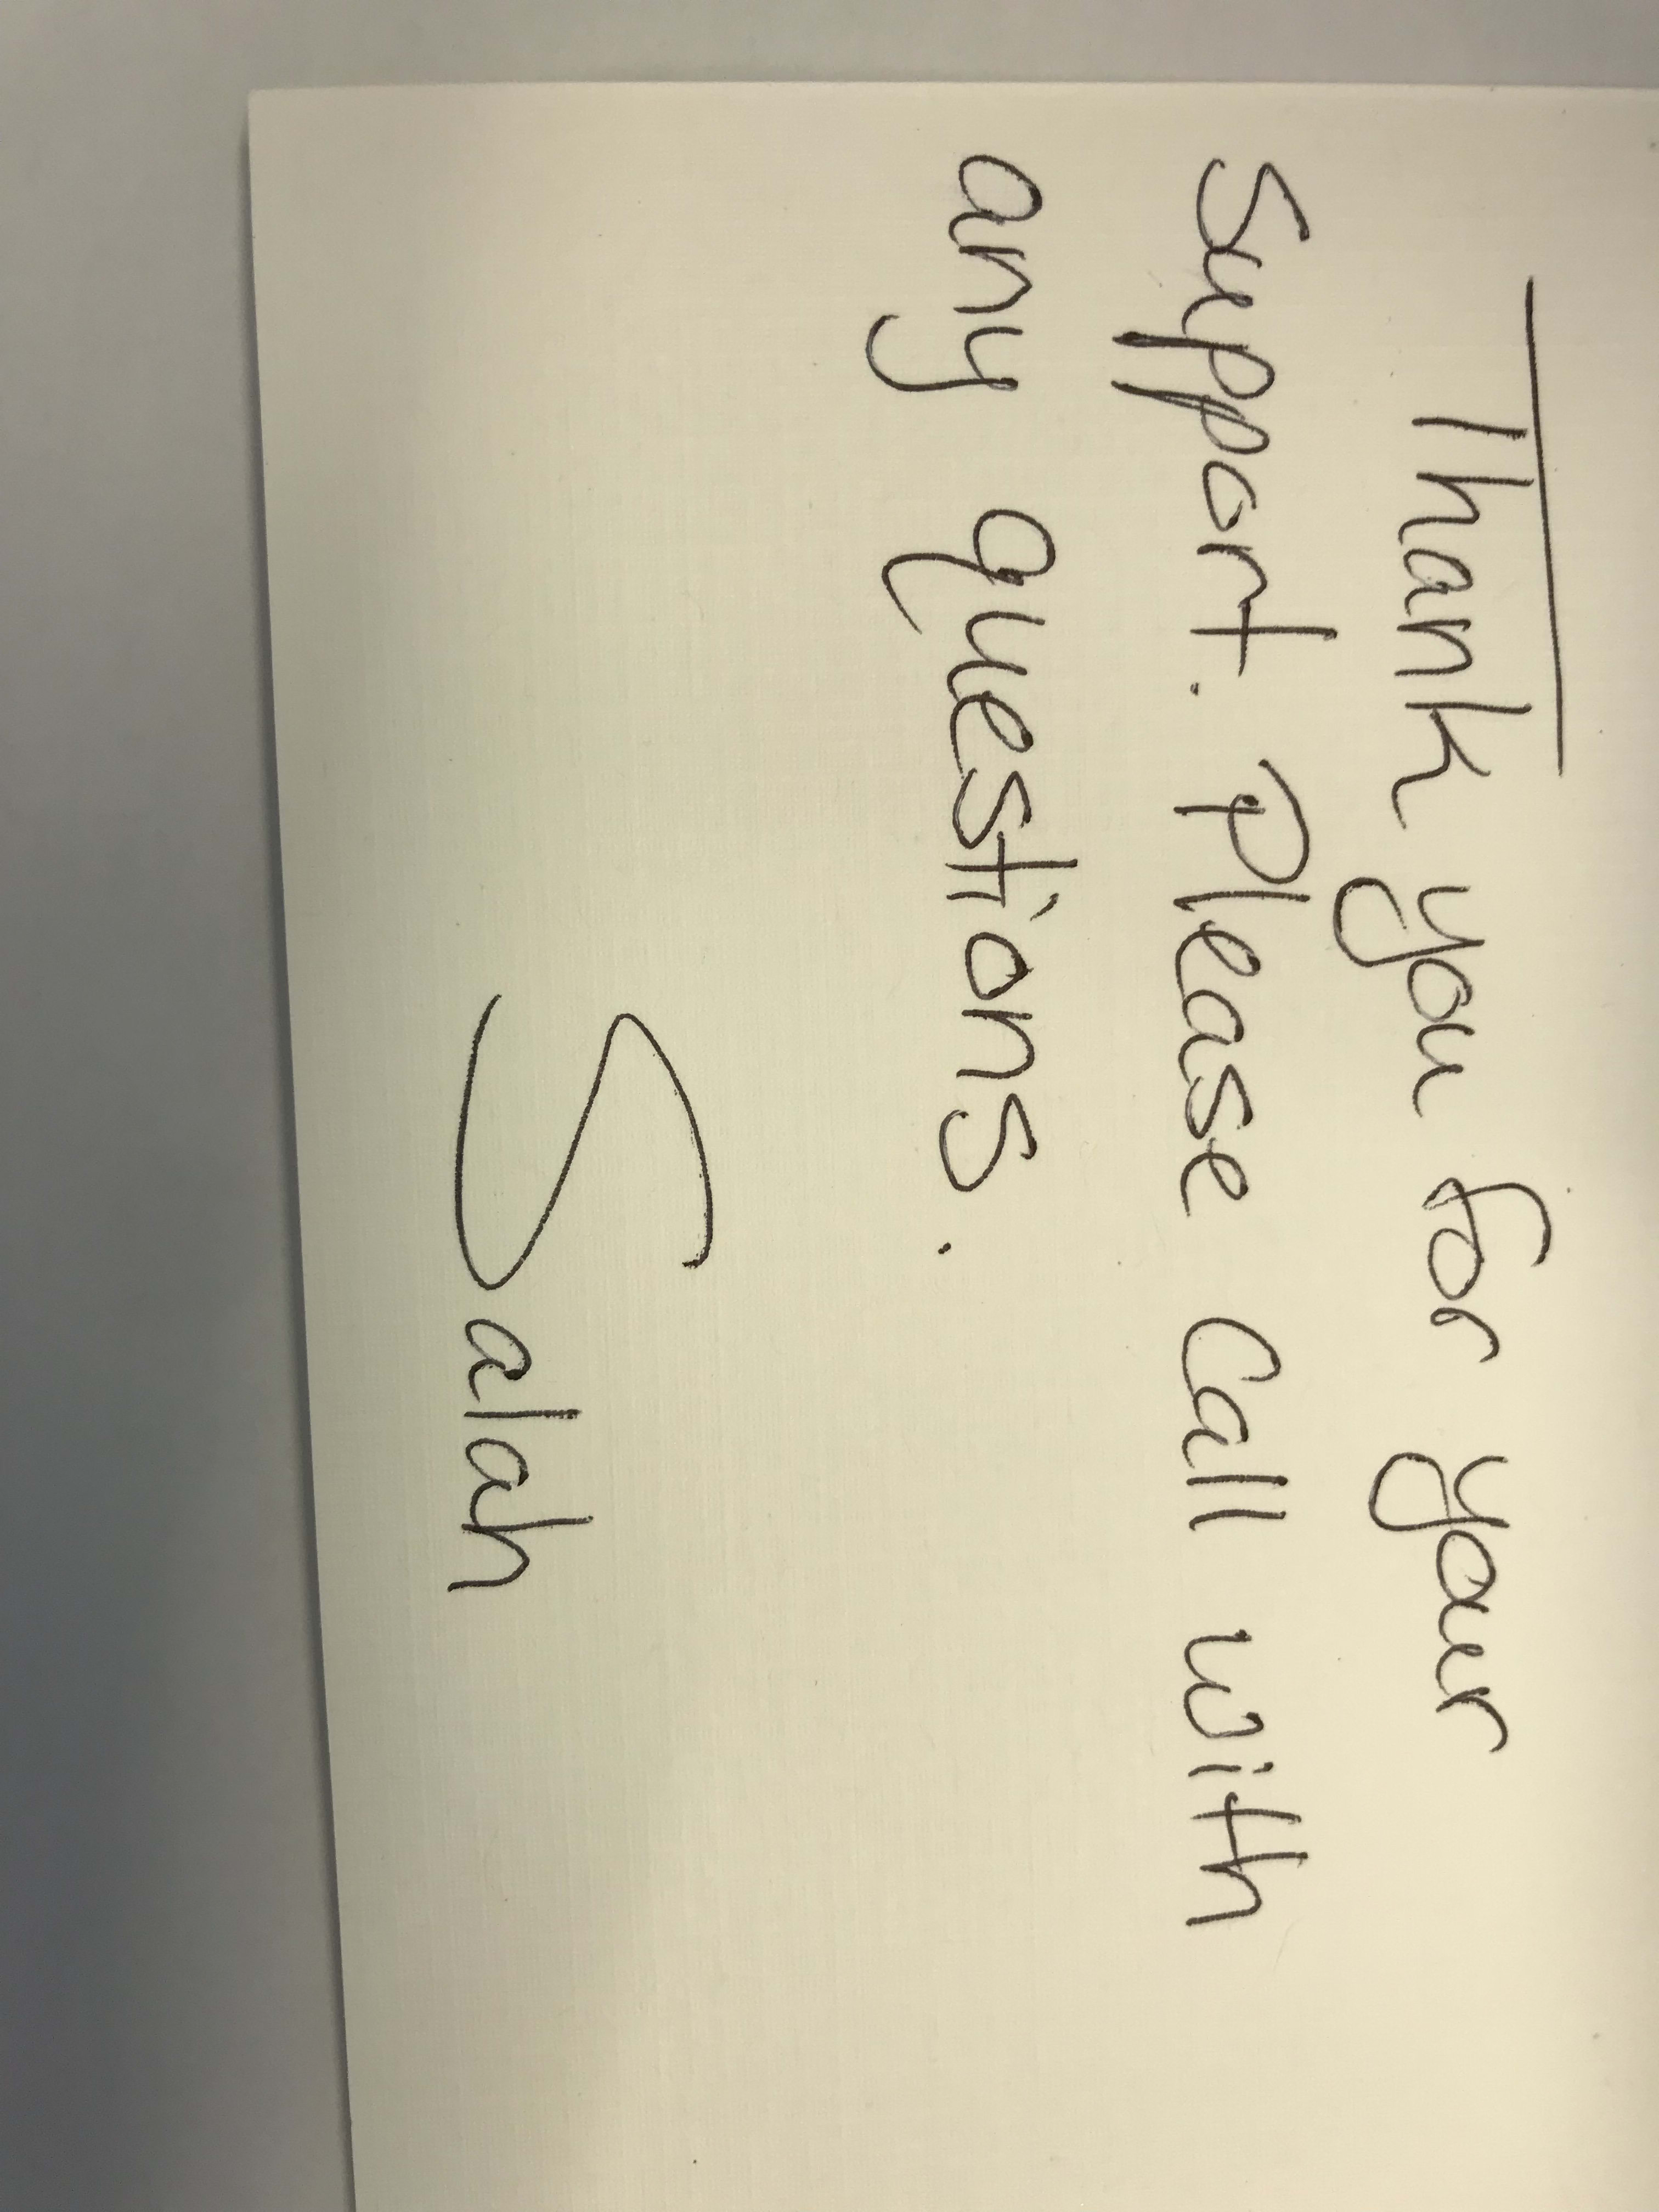 Thank you for your
support. Please call with
any questions.
Salah